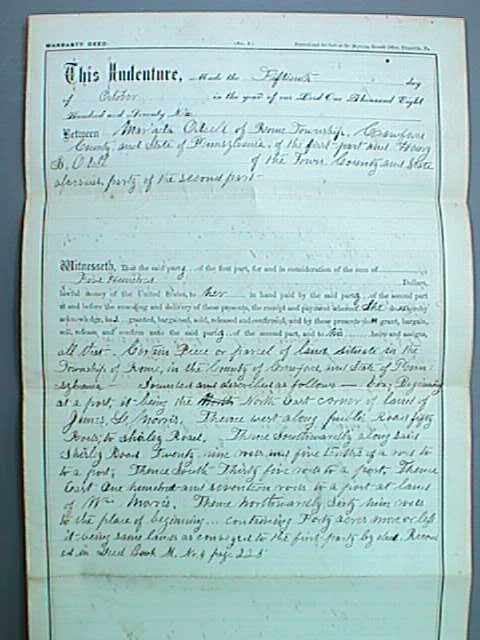 WARRANTY DEED.
This Indenture, Made the Fifteenth day
of October in the year of our Lord One Thousand Eight
Hundred and Seventy
Between of Rome Township Crawford
County and State of Pennsylvania, of the first part and Henry
of the Town, County and State
aforesaid, party of the second part
Witnesseth, That the said party of the first part, for and in consideration of the sum of
Five Hundred Dollars,
lawful money of the United States, to her in hand paid by the said party of the second part
at and before the ensealing and delivery of these presents, the receipt and payment whereof She hereby
acknowledg, granted, bargained, sold, released and confirmed, and by these presents grant, bargain,
sell, release, and confirm unto the said party of the second part, and to his heirs and assigns,
all that Certain Piece or parcel of land situate in the
Township of Rome, in the County of Crawford and State of Penn
sylvania bounded and described as follows Beginning
at a post, it being the North East corner of lands of
James Morris. Thence west along public Road fifty
rods, to Shirley Road, Thence Southwardly along said
Shirley Road Twenty nine rods and five tenths of a rod to
to a post; Thence South Thirty five rods to a post, Thence
East One hundred and seventeen rods to a post at lands
of Wm Morris. Thence northwardly Sixty nine rods
to the place of beginning... Containing Forty acres more or less
it being same lands as conveyed to the first party by deed Record
ed in Deed Book M. No. 4 page 225